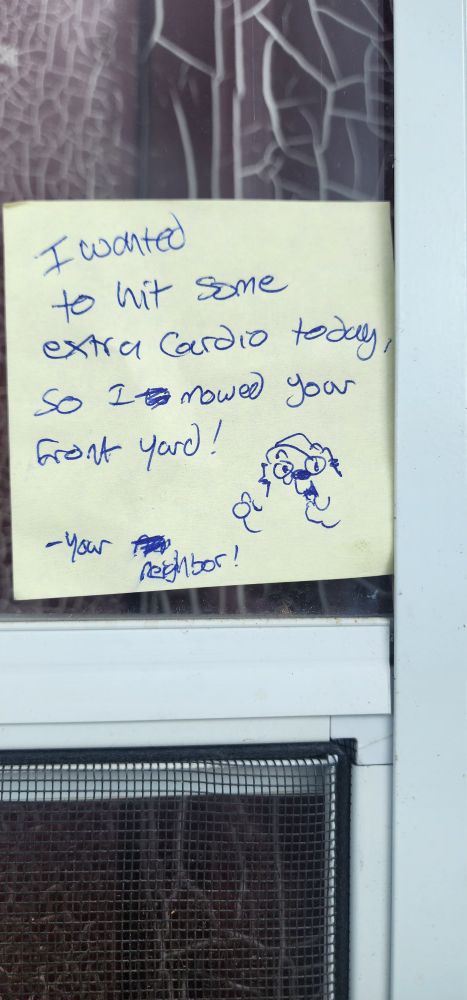 I wanted
to hit some
extra Cardio today,
so I mowed your
front yard!
-your
neighbor!